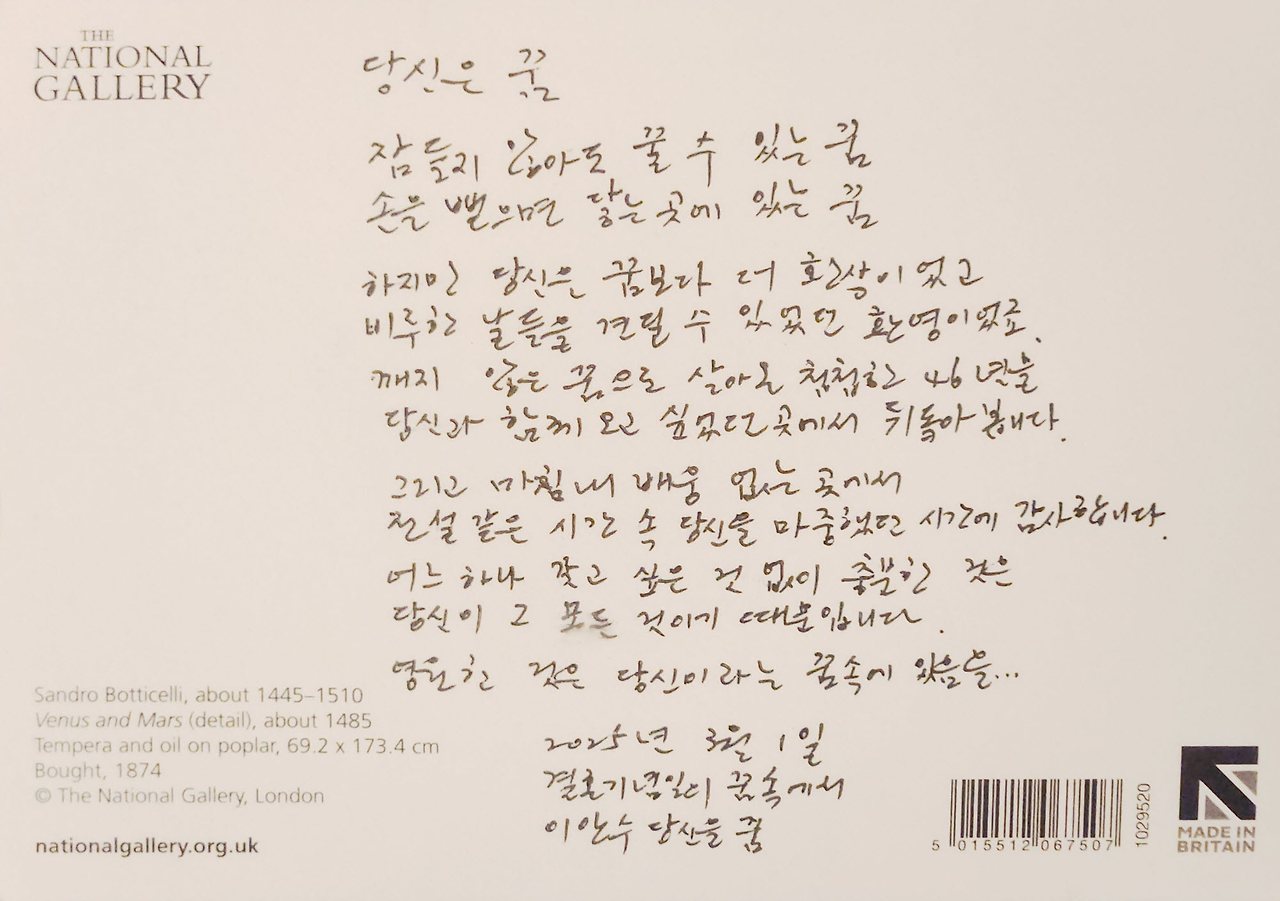 THE
NATIONAL
GALLERY
당신은 꿈
잠들지 않아도 꿀 수 있는 꿈
손을 뻗으면 닿는 곳에 있는 꿈
하지만 당신은 꿈보다 더 환상이었고
비루한 날들을 견딜 수 있었던 환영이었죠.
깨지 않은 꿈으로 살아온 첩첩한 46년을
당신과 함께 오고 싶었던 곳에서 뒤돌아봅니다.
그리고 마침내 배움 없는 곳에서
전설 같은 시간 속 당신을 마중했던 시간에 감사합니다.
어느 하나 갖고 싶은 것 없이 충분한 것은
당신이 그 모든 것이기 때문입니다.
영원한 것은 당신이라는 꿈속에 있음을...
2025년 3월 1일
결혼기념일의 꿈속에서
이안수 당신을 꿈
Sandro Botticelli, about 1445–1510
Venus and Mars (detail), about 1485
Tempera and oil on poplar, 69.2 x 173.4 cm
Bought, 1874
© The National Gallery, London
nationalgallery.org.uk
5 015512 067507
1029520
MADE IN
BRITAIN